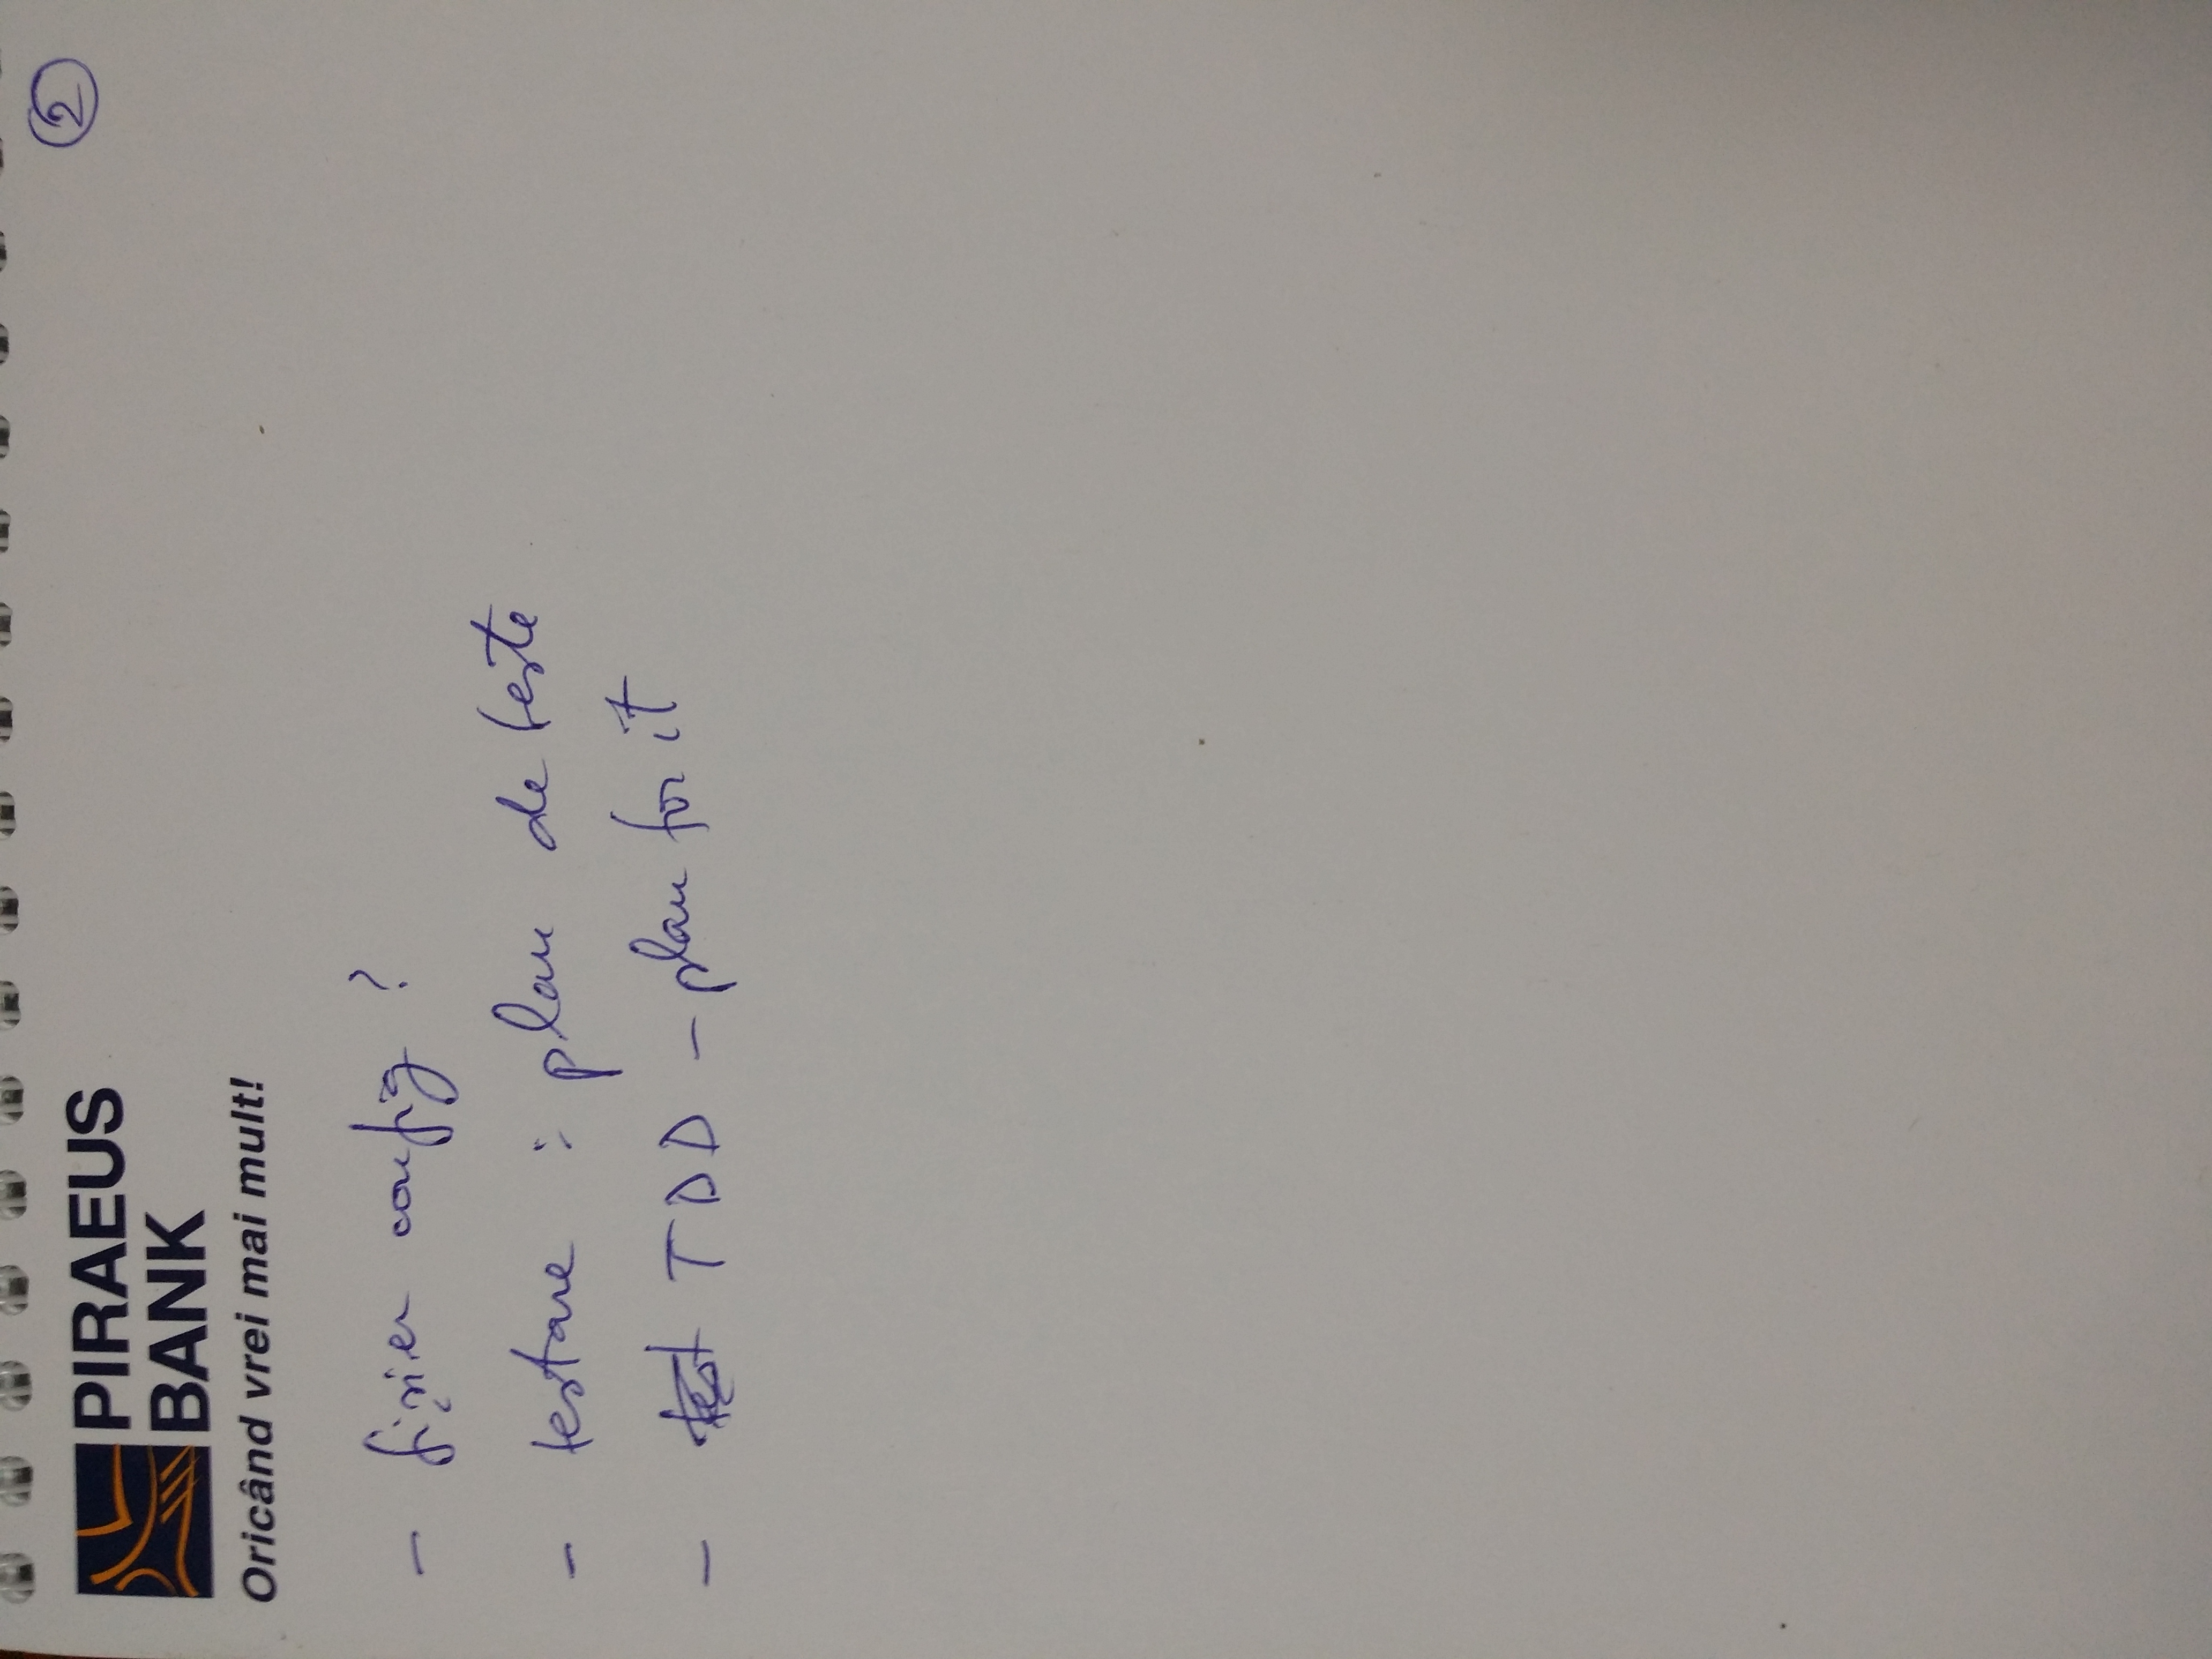 2
PIRAEUS
BANK
Oricând vrei mai mult!
- fișier config ?
- testare : plan de teste
- test TDD - plan for it